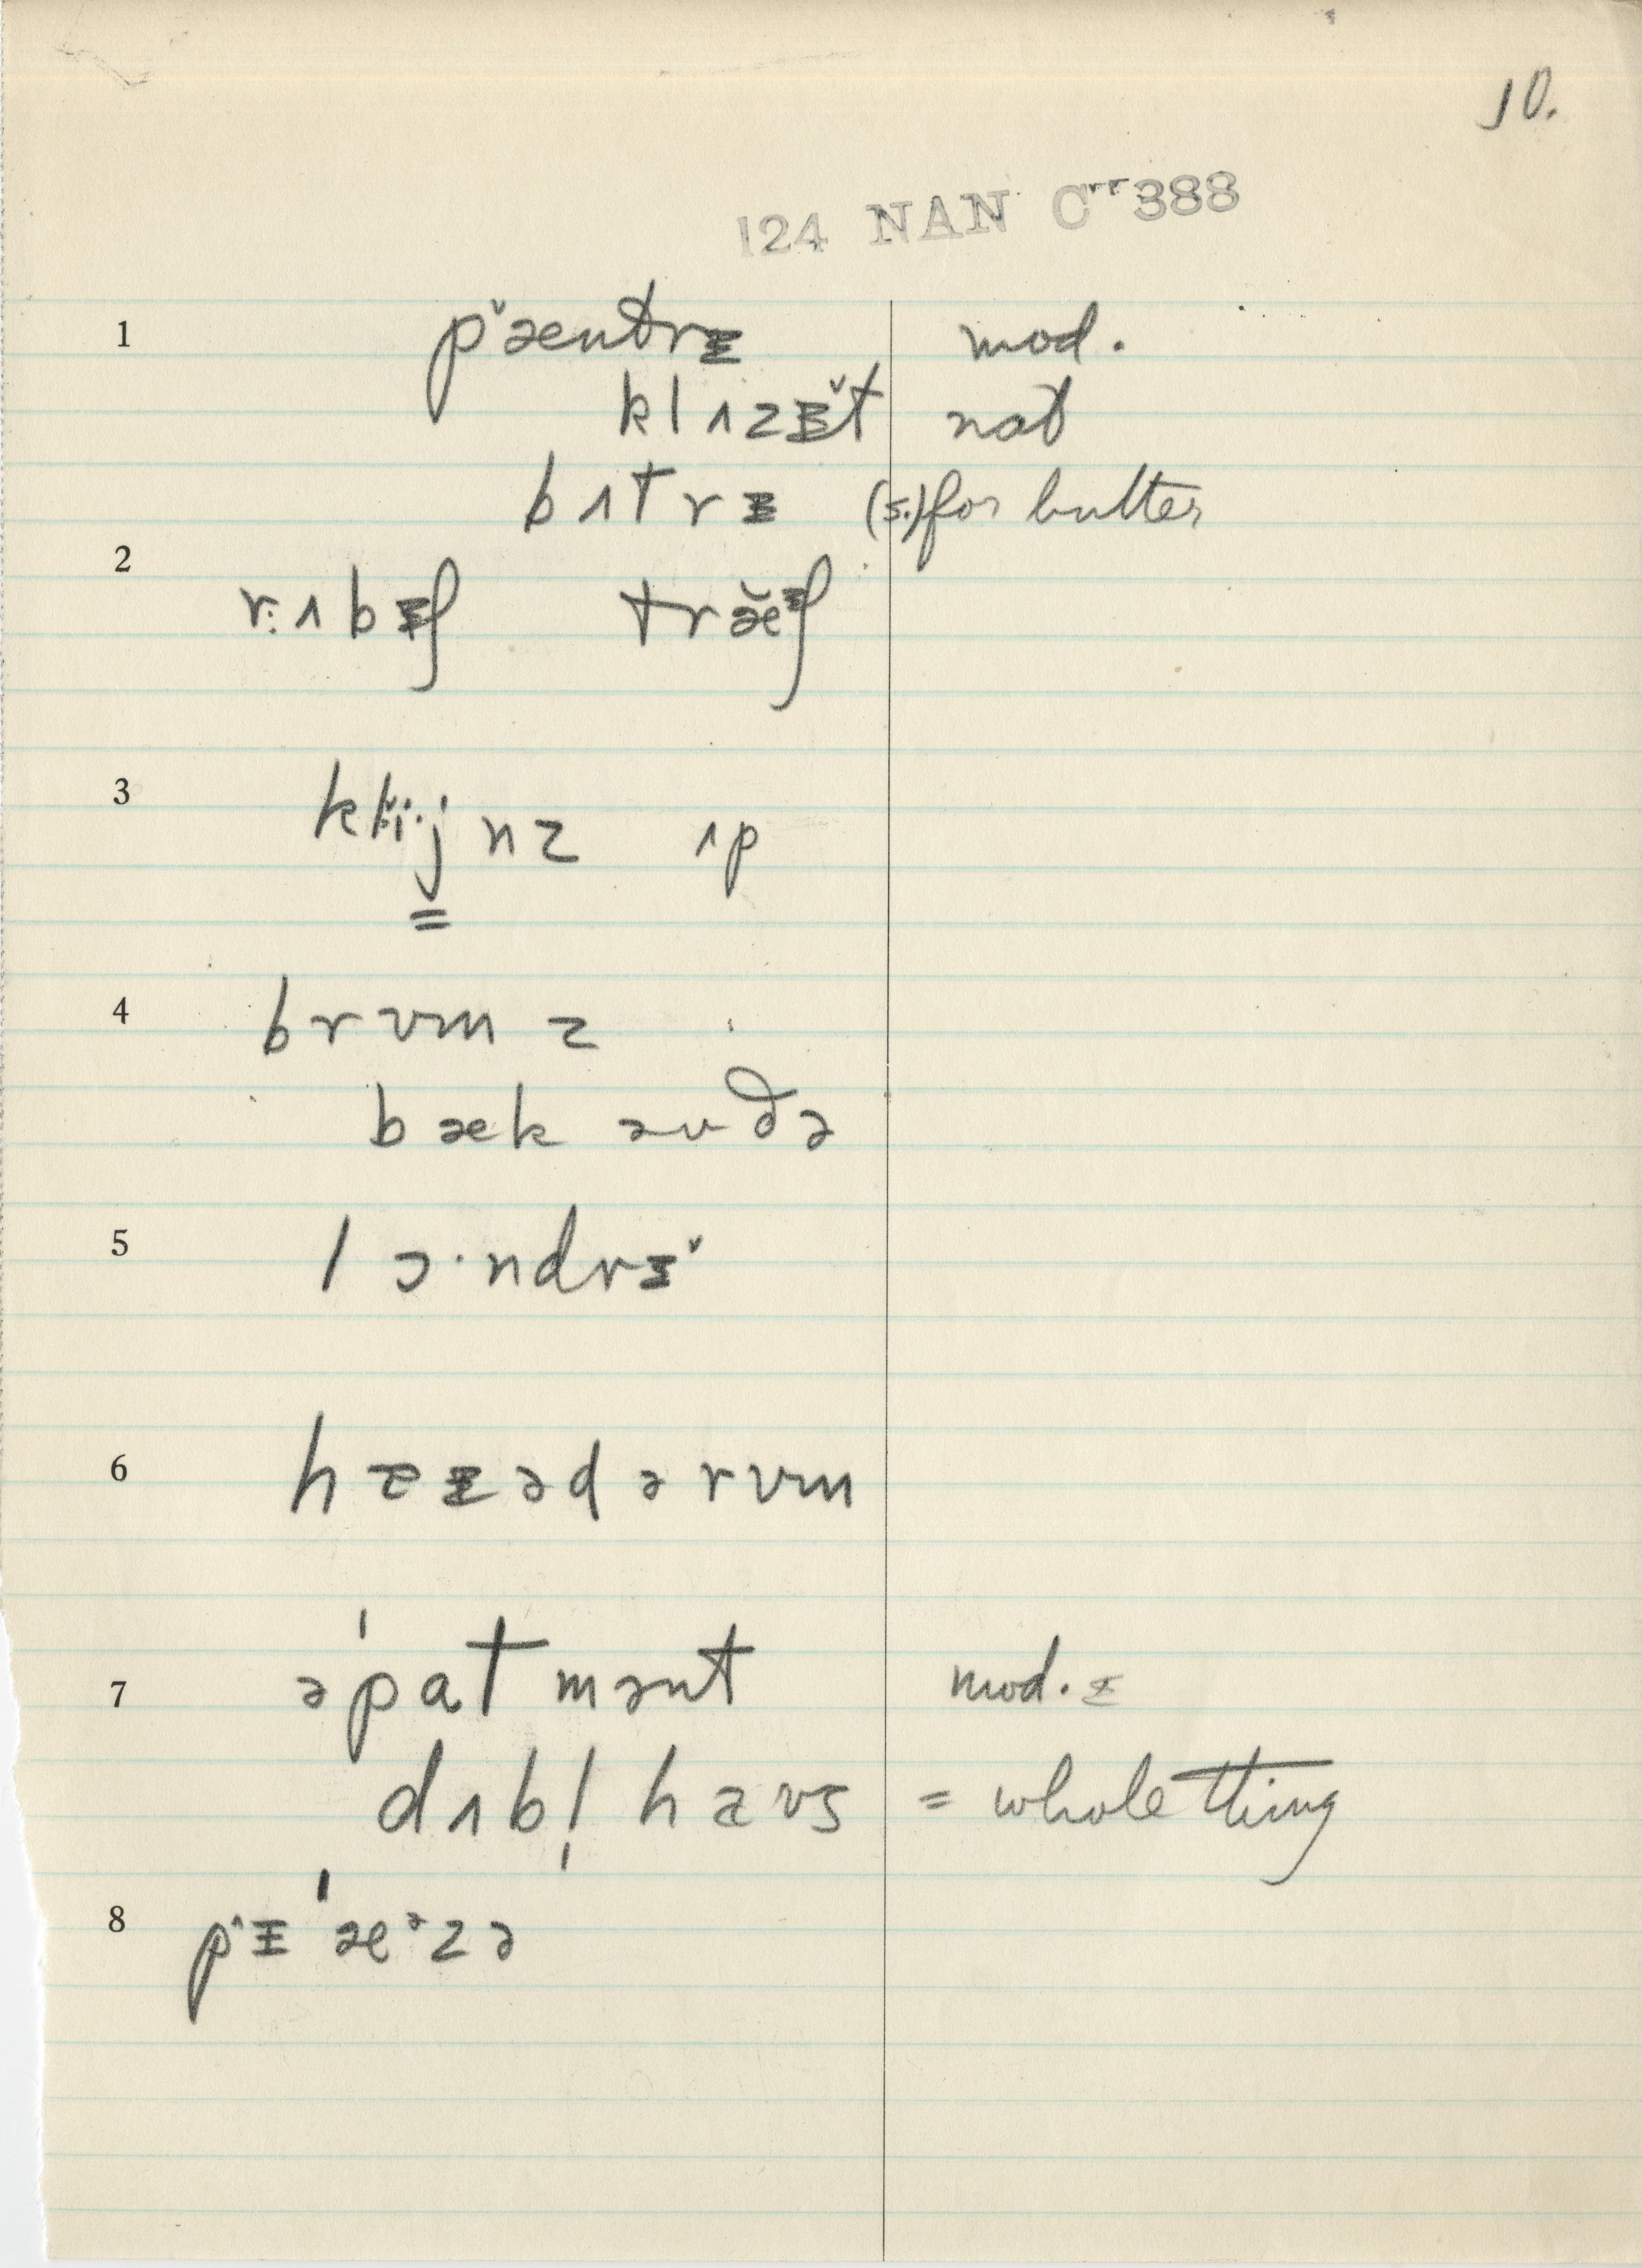 10.
124 NAN C 388
1 pˇæntrᵻ mod.
klʌzᵻˇt nat
bʌtrᵻ (s.) for butter
2 r:ʌbᵻʃ træˇᵻʃ
3 nz ʌp
4 brʊm z
bæk əv ðə
5 lɔ·ndrᵻˇ
6 hᵻədərʊm
7 əˈpatmənt mod. ᵻ
dʌbl̩ haʊs = whole thing
8 pˆᵻˈæᵊzə